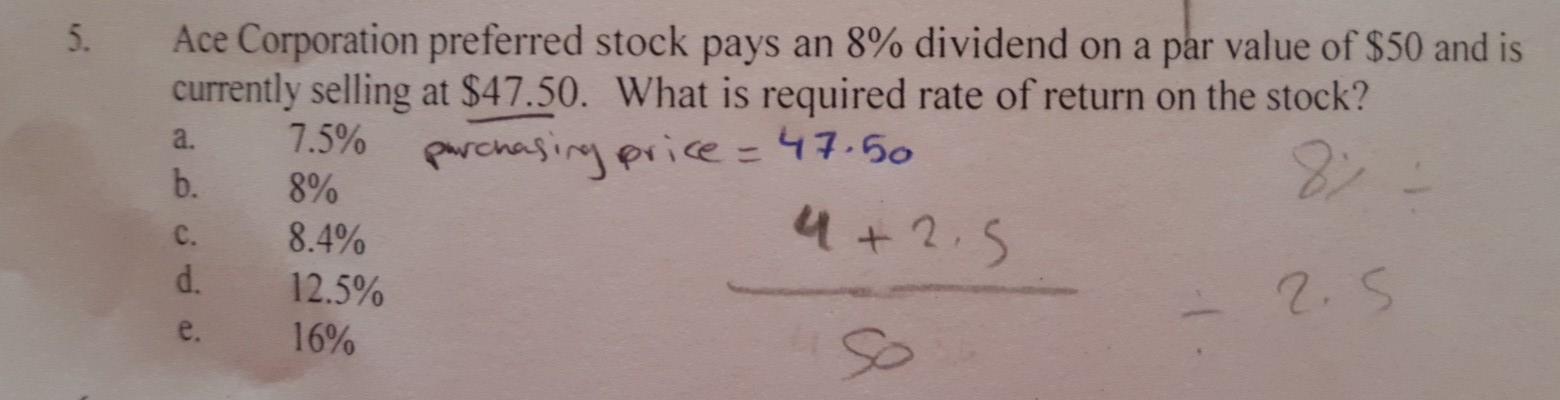 5. Ace Corporation preferred stock pays an 8% dividend on a par value of $50 and is
currently selling at $47.50. What is required rate of return on the stock?
a. 7.5% purchasing price = 47.50
b. 8% 8% ÷
c. 8.4% 4 + 2.5
d. 12.5% ÷ 2.5
e. 16% 50